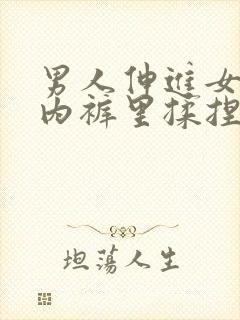 男人伸进女
内裤里揉捏
坦荡人生